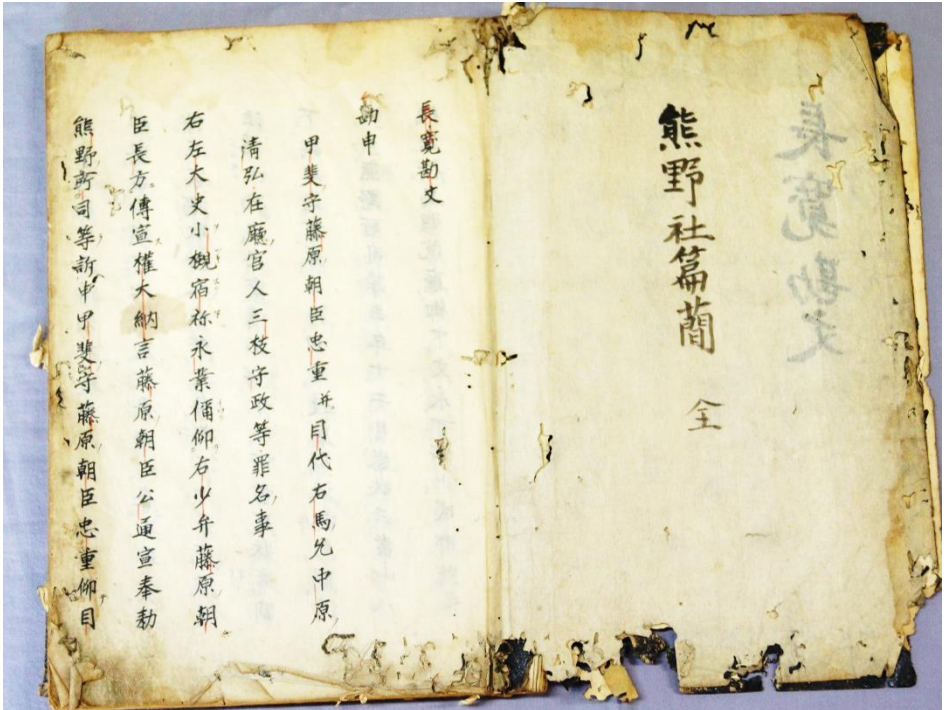 長寛勘文
熊野社篇蕳
全
長寛勘文
勘申
甲斐守藤原朝臣忠重并目代右馬允中原
清弘在廳官人三枝守政等罪名事
右左大史小槻宿祢永業仰右少弁藤原朝
臣長方傳宣權大納言藤原朝臣公通宣奉勅
熊野所司等訴申甲斐守藤原朝臣忠重仰目